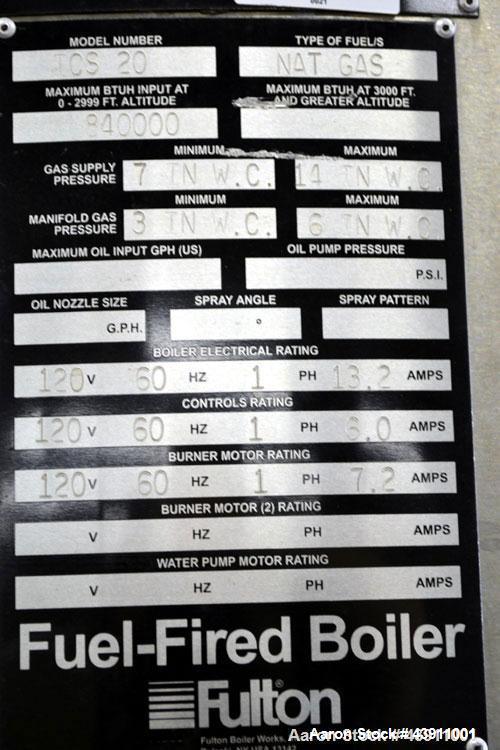 MODEL NUMBER TYPE OF FUEL/S
ICS 20 NAT GAS
MAXIMUM BTUH INPUT AT
0 - 2999 FT. ALTITUDE
MAXIMUM BTUH AT 3000 FT.
AND GREATER ALTITUDE
840000
MINIMUM MAXIMUM
GAS SUPPLY
PRESSURE
7 IN W.C. 14 IN W.C.
MINIMUM MAXIMUM
MANIFOLD GAS
PRESSURE
3 IN W.C. 6 IN W.C.
MAXIMUM OIL INPUT GPH (US) OIL PUMP PRESSURE
P.S.I.
OIL NOZZLE SIZE SPRAY ANGLE SPRAY PATTERN
G.P.H. °
BOILER ELECTRICAL RATING
120 V 60 HZ 1 PH 13.2 AMPS
CONTROLS RATING
120 V 60 HZ 1 PH 6.0 AMPS
BURNER MOTOR RATING
120 V 60 HZ 1 PH 7.2 AMPS
BURNER MOTOR (2) RATING
V HZ PH AMPS
WATER PUMP MOTOR RATING
V HZ PH AMPS
Fuel-Fired Boiler
Fulton
Fulton Boiler Works,
Aaron Stock #43911001